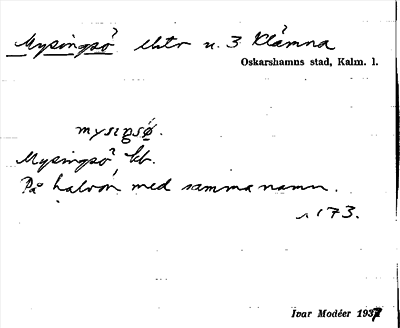 Mysingsö
u. 3 Klämna
Oskarshamns stad, Kalm. l.
Mysingsö kb.
På halvön med samma namn.
s 173.
Ivar Modéer 1937